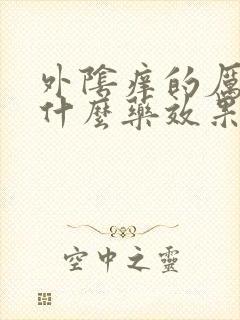 外陰痒的厲
什麼藥效果
空中之靈